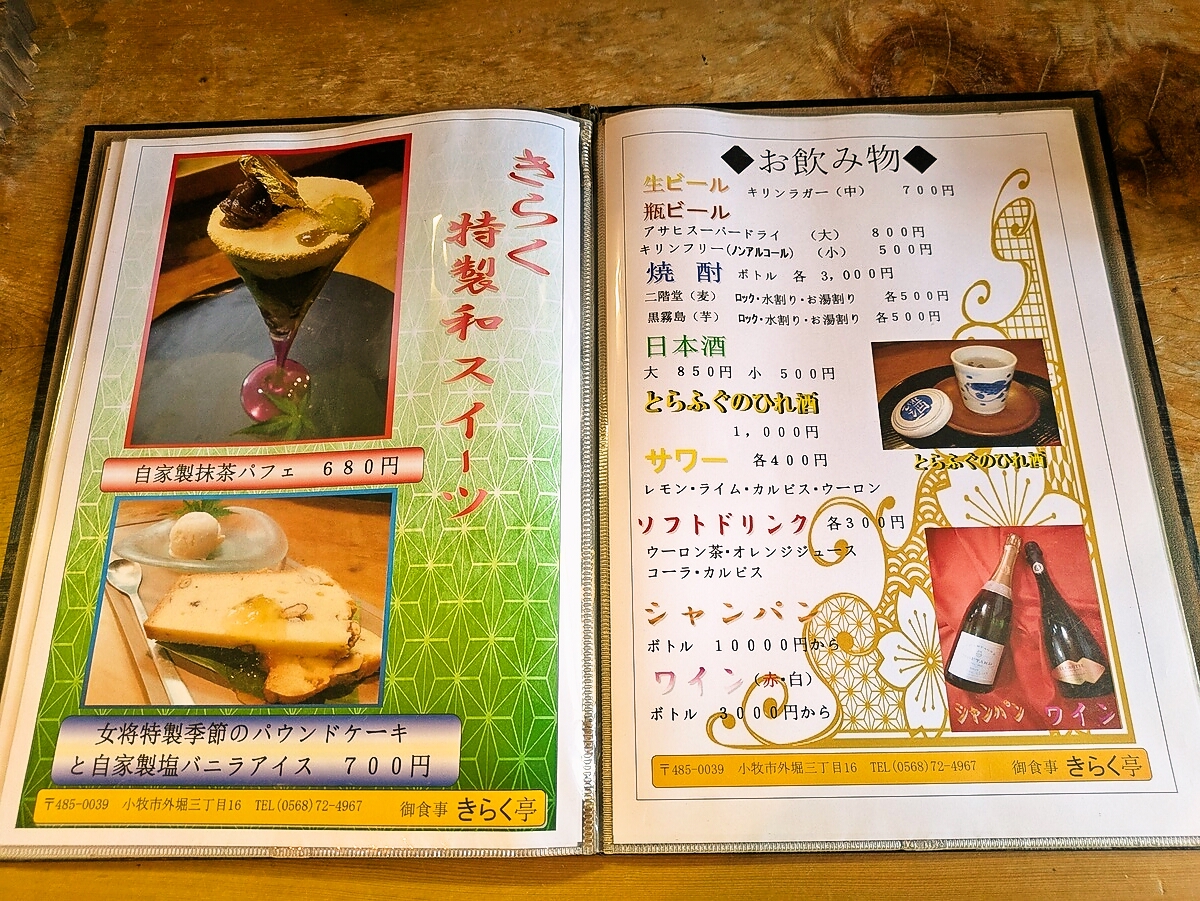 きらく
特製和スイーツ
自家製抹茶パフェ 680円
女将特製季節のパウンドケーキ
と自家製塩バニラアイス 700円
〒485-0039 小牧市外堀三丁目16 TEL(0568)72-4967 御食事 きらく亭
◆お飲み物◆
生ビール キリンラガー(中) 700円
瓶ビール
アサヒスーパードライ (大) 800円
キリンフリー(ノンアルコール) (小) 500円
焼酎 ボトル 各 3,000円
二階堂(麦) ロック・水割り・お湯割り 各500円
黒霧島(芋) ロック・水割り・お湯割り 各500円
日本酒
大 850円 小 500円
とらふぐのひれ酒
1,000円
とらふぐのひれ酒
サワー 各400円
レモン・ライム・カルピス・ウーロン
ソフトドリンク 各300円
ウーロン茶・オレンジジュース
コーラ・カルピス
シャンパン
ボトル 10000円から
ワイン(赤・白)
ボトル 3000円から
シャンパン ワイン
〒485-0039 小牧市外堀三丁目16 TEL(0568)72-4967 御食事 きらく亭